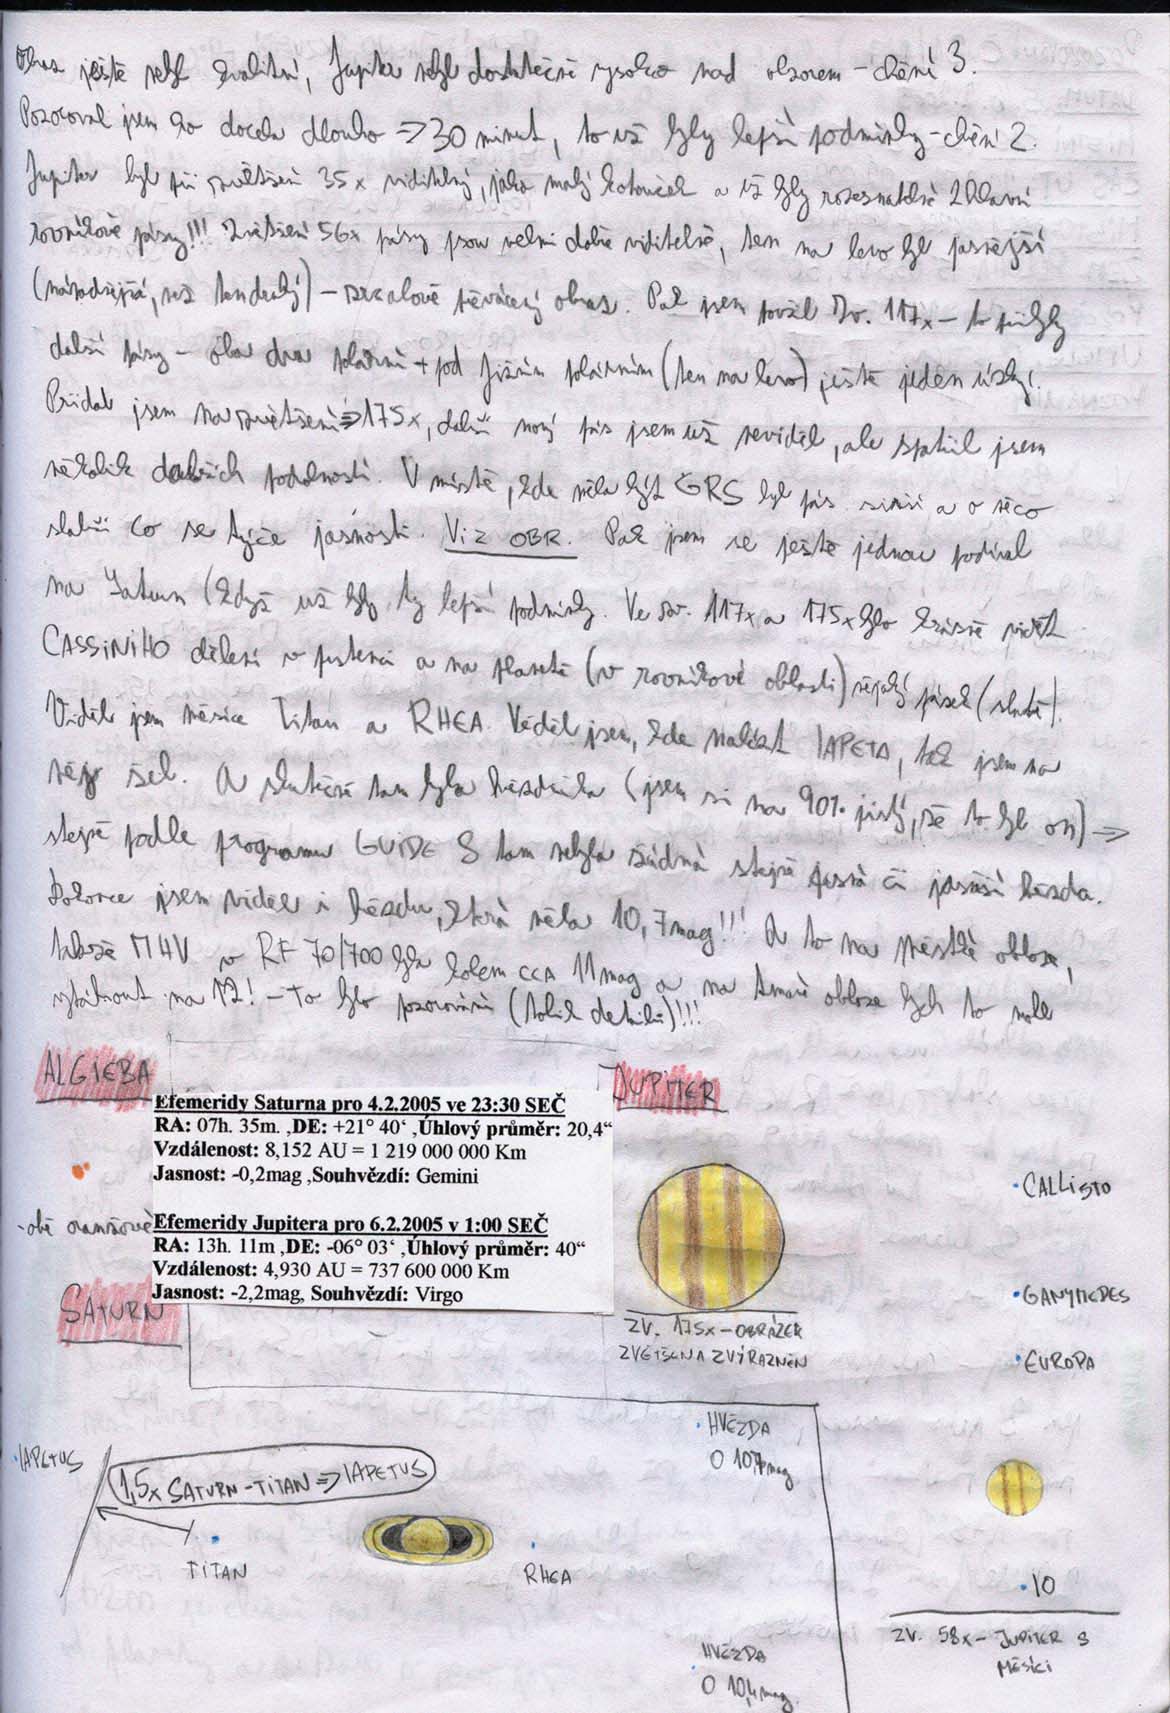 Obraz ještě nebyl kvalitní, Jupiter nebyl dostatečně vysoko nad obzorem – chění 3.
Pozoroval jsem ho docela dlouho => 30 minut, to už byly lepší podmínky – chění 2.
Jupiter byl při zvětšení 35x viditelný, jako malý kotouček a už byly rozeznatelné 2 hlavní
rovníkové pásy!!! Zvětšení 56x pásy jsou velmi dobře viditelné, ten na levo byl jasnější
(nápadnější, než ten druhý) – zrcalově převrácený obraz. Pak jsem použil Zv. 117x – to přibyly
další pásy – oba dva polární + pod jižním polárním (ten na levo) ještě jeden úzký.
Přidal jsem na zvětšení => 175x, další nový pás jsem už neviděl, ale spatřil jsem
několik dalších podrobností. V místě, kde měla být GRS byl pás širší a o něco
slabší co se týče jasnosti. Viz OBR. Pak jsem se ještě jednou podíval
na Saturn (když už byly ty lepší podmínky. Ve zv. 117x a 175x bylo krásně vidět
CASSiNiHO dělení v prstenci a na planetě (v rovníkové oblasti) nějaký pásek (slabě).
Viděl jsem měsíce Titan a RHEA. Věděl jsem, kde nalézt IAPETA, tak jsem na
něj šel. A skutečně tam byla hvězdička (jsem si na 90% jistý, že to byl on) =>
stejně podle programu GUiDE 8 tam nebyla žádná stejně jasná či jasnější hvězda.
Dokonce jsem viděl i hvězdu, která měla 10,7mag!!! A to na městké obloze,
takže MHV v RF 70/700 byla kolem cca 11mag a na tmavé obloze bych to mohl
vytáhnout na 12! – To bylo pozorování (tolik detailů)!!!
ALGIEBA
JUPiTER
Efemeridy Saturna pro 4.2.2005 ve 23:30 SEČ
RA: 07h. 35m. ,DE: +21° 40‘ ,Úhlový průměr: 20,4“
Vzdálenost: 8,152 AU = 1 219 000 000 Km
Jasnost: -0,2mag ,Souhvězdí: Gemini
- obě oranžové
Efemeridy Jupitera pro 6.2.2005 v 1:00 SEČ
RA: 13h. 11m ,DE: -06° 03‘ ,Úhlový průměr: 40“
Vzdálenost: 4,930 AU = 737 600 000 Km
Jasnost: -2,2mag, Souhvězdí: Virgo
SATURN
CALLiSTO
GANYMEDES
EUROPA
ZV. 175x – OBRÁZEK
ZVĚTŠEN A ZVÝRAZNĚN
HVĚZDA
O 10,7mag
IAPETUS
1,5x SATURN – TiTAN => IAPETUS
TiTAN
RHEA
IO
ZV. 58x – JUPiTER S
MĚSÍCi
HVĚZDA
O 10,4mag